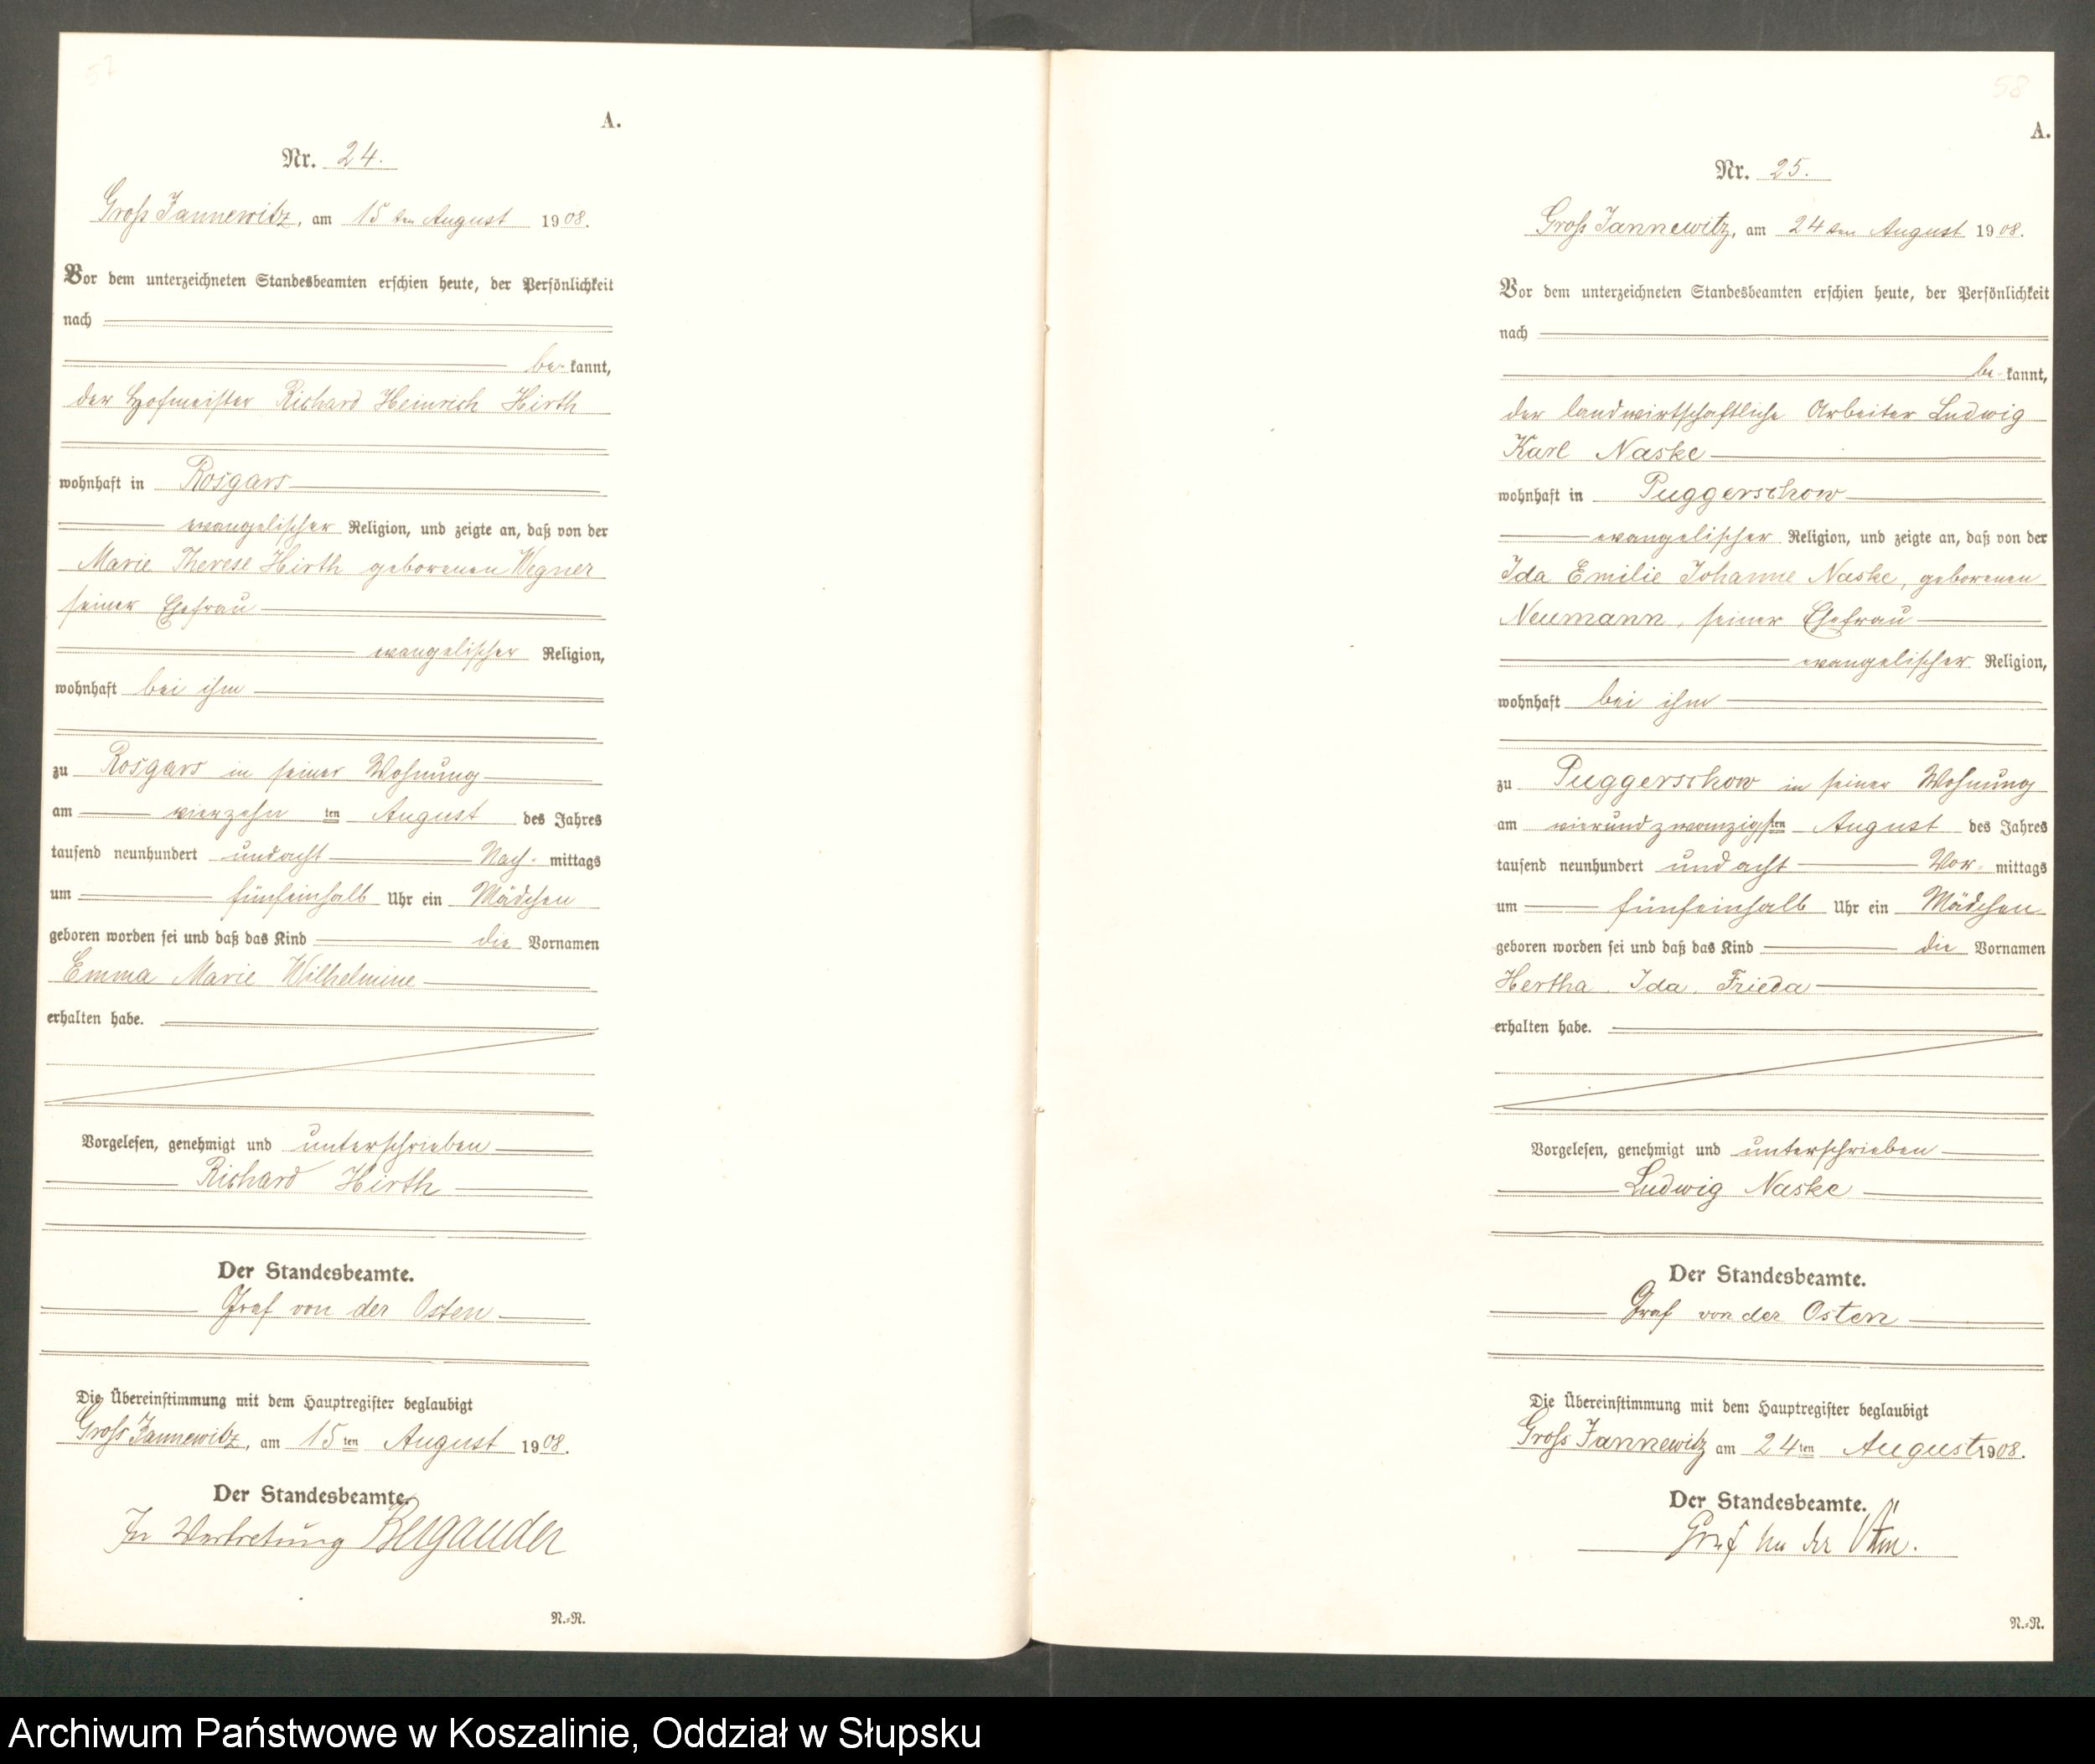 57
A.
Nr. 24.
Groß Jannewitz, am 15ten August 1908.
Vor dem unterzeichneten Standesbeamten erschien heute, der Persönlichkeit
nach
be-kannt,
der Hofmeister Richard Heinrich Hirth
wohnhaft in Rosgars
evangelischer Religion, und zeigte an, daß von der
Marie Therese Hirth geborenen Wegner
seiner Ehefrau
evangelischer Religion,
wohnhaft bei ihm
zu Rosgars in seiner Wohnung
am vierzehn ten August des Jahres
tausend neunhundert undacht Nach- mittags
um fünfeinhalb Uhr ein Mädchen
geboren worden sei und daß das Kind die Vornamen
Emma Marie Wilhelmine
erhalten habe.
Vorgelesen, genehmigt und unterschrieben
Richard Hirth
Der Standesbeamte.
Graf von der Osten
Die Übereinstimmung mit dem Hauptregister beglaubigt
Groß Jannewitz, am 15ten August 1908.
Der Standesbeamte.
In Vertretung Bergander
N.=N.
58
A.
Nr. 25.
Groß Jannewitz, am 24ten August 1908.
Vor dem unterzeichneten Standesbeamten erschien heute, der Persönlichkeit
nach
be-kannt,
der landwirtschaftliche Arbeiter Ludwig
Karl Naske
wohnhaft in Puggerschow
evangelischer Religion, und zeigte an, daß von der
Ida Emilie Johanne Naske, geborenen
Neumann, seiner Ehefrau
evangelischer Religion,
wohnhaft bei ihm
zu Puggerschow in seiner Wohnung
am vierundzwanzigsten August des Jahres
tausend neunhundert undacht Vor- mittags
um fünfeinhalb Uhr ein Mädchen
geboren worden sei und daß das Kind die Vornamen
Hertha, Ida, Frieda
erhalten habe.
Vorgelesen, genehmigt und unterschrieben
Ludwig Naske
Der Standesbeamte.
Graf von der Osten
Die Übereinstimmung mit dem Hauptregister beglaubigt
Groß Jannewitz am 24ten August 1908.
Der Standesbeamte.
Graf von der Osten.
N.=N.
Archiwum Państwowe w Koszalinie, Oddział w Słupsku